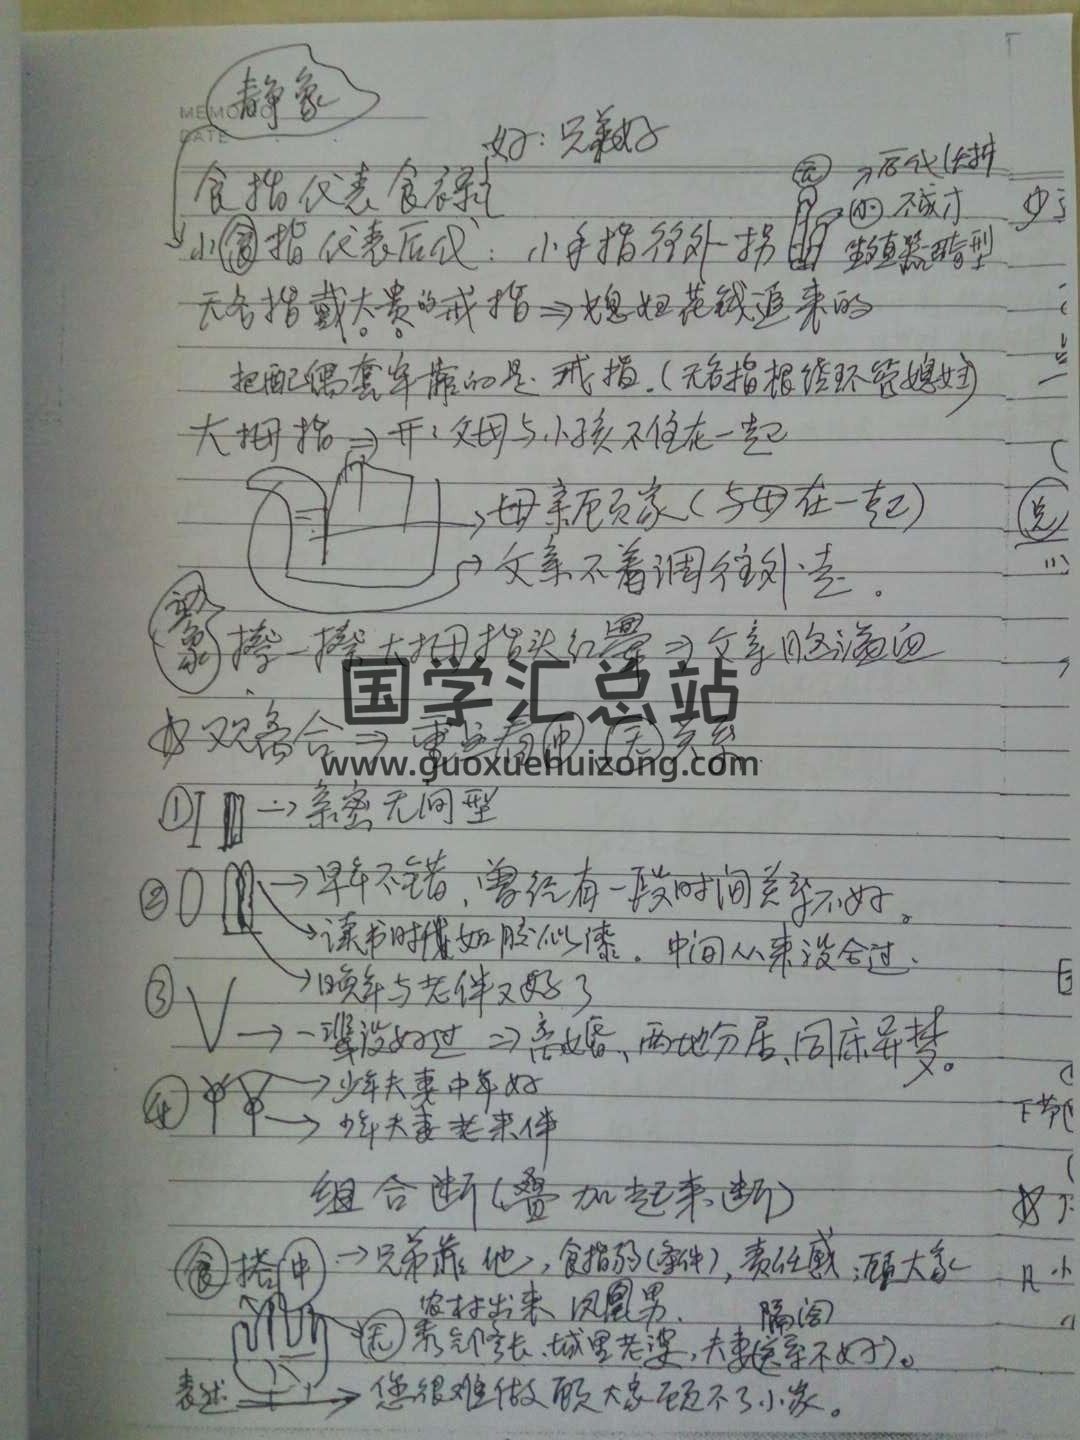 静象
MEMO NO.
DATE
好：兄弟好
食指代表食禄
无 → 后代(夫妻
小 不成才
生殖器 型
小食指代表后代：小手指往外拐
无名指戴太贵的戒指 ⇒ 媳妇花钱追来的
把配偶套牢靠的是戒指.(无名指根 环管媳妇)
大拇指 ⇒ 开：父母与小孩不住在一起
→ 母亲顾家(与母在一起)
→ 父亲不着调往外走。
动象 擦一擦大拇指头红晕 ⇒ 父亲脑溢血
国学汇总站
合 ⇒ 重点看中、无关系
www.guoxuehuizong.com
① → 亲密无间型
② → 早年不错，曾经有一段时间关系不好。
→ 读书时代如胶似漆。中间从来没合过.
→ 晚年与老伴又好了
③ → 一辈没好过 ⇒ 离婚、两地分居、同床异梦。
④ → 少年夫妻中年好
→ 少年夫妻老来伴
组合断(叠加起来断)
食搭中 → 兄弟靠他，食指弱(条件)，责任感，顾大家
农村出来 凤凰男. 隔阂
无 城里老婆，夫妻关系不好)。
表述 → 您很难做 顾大家顾不了小家。